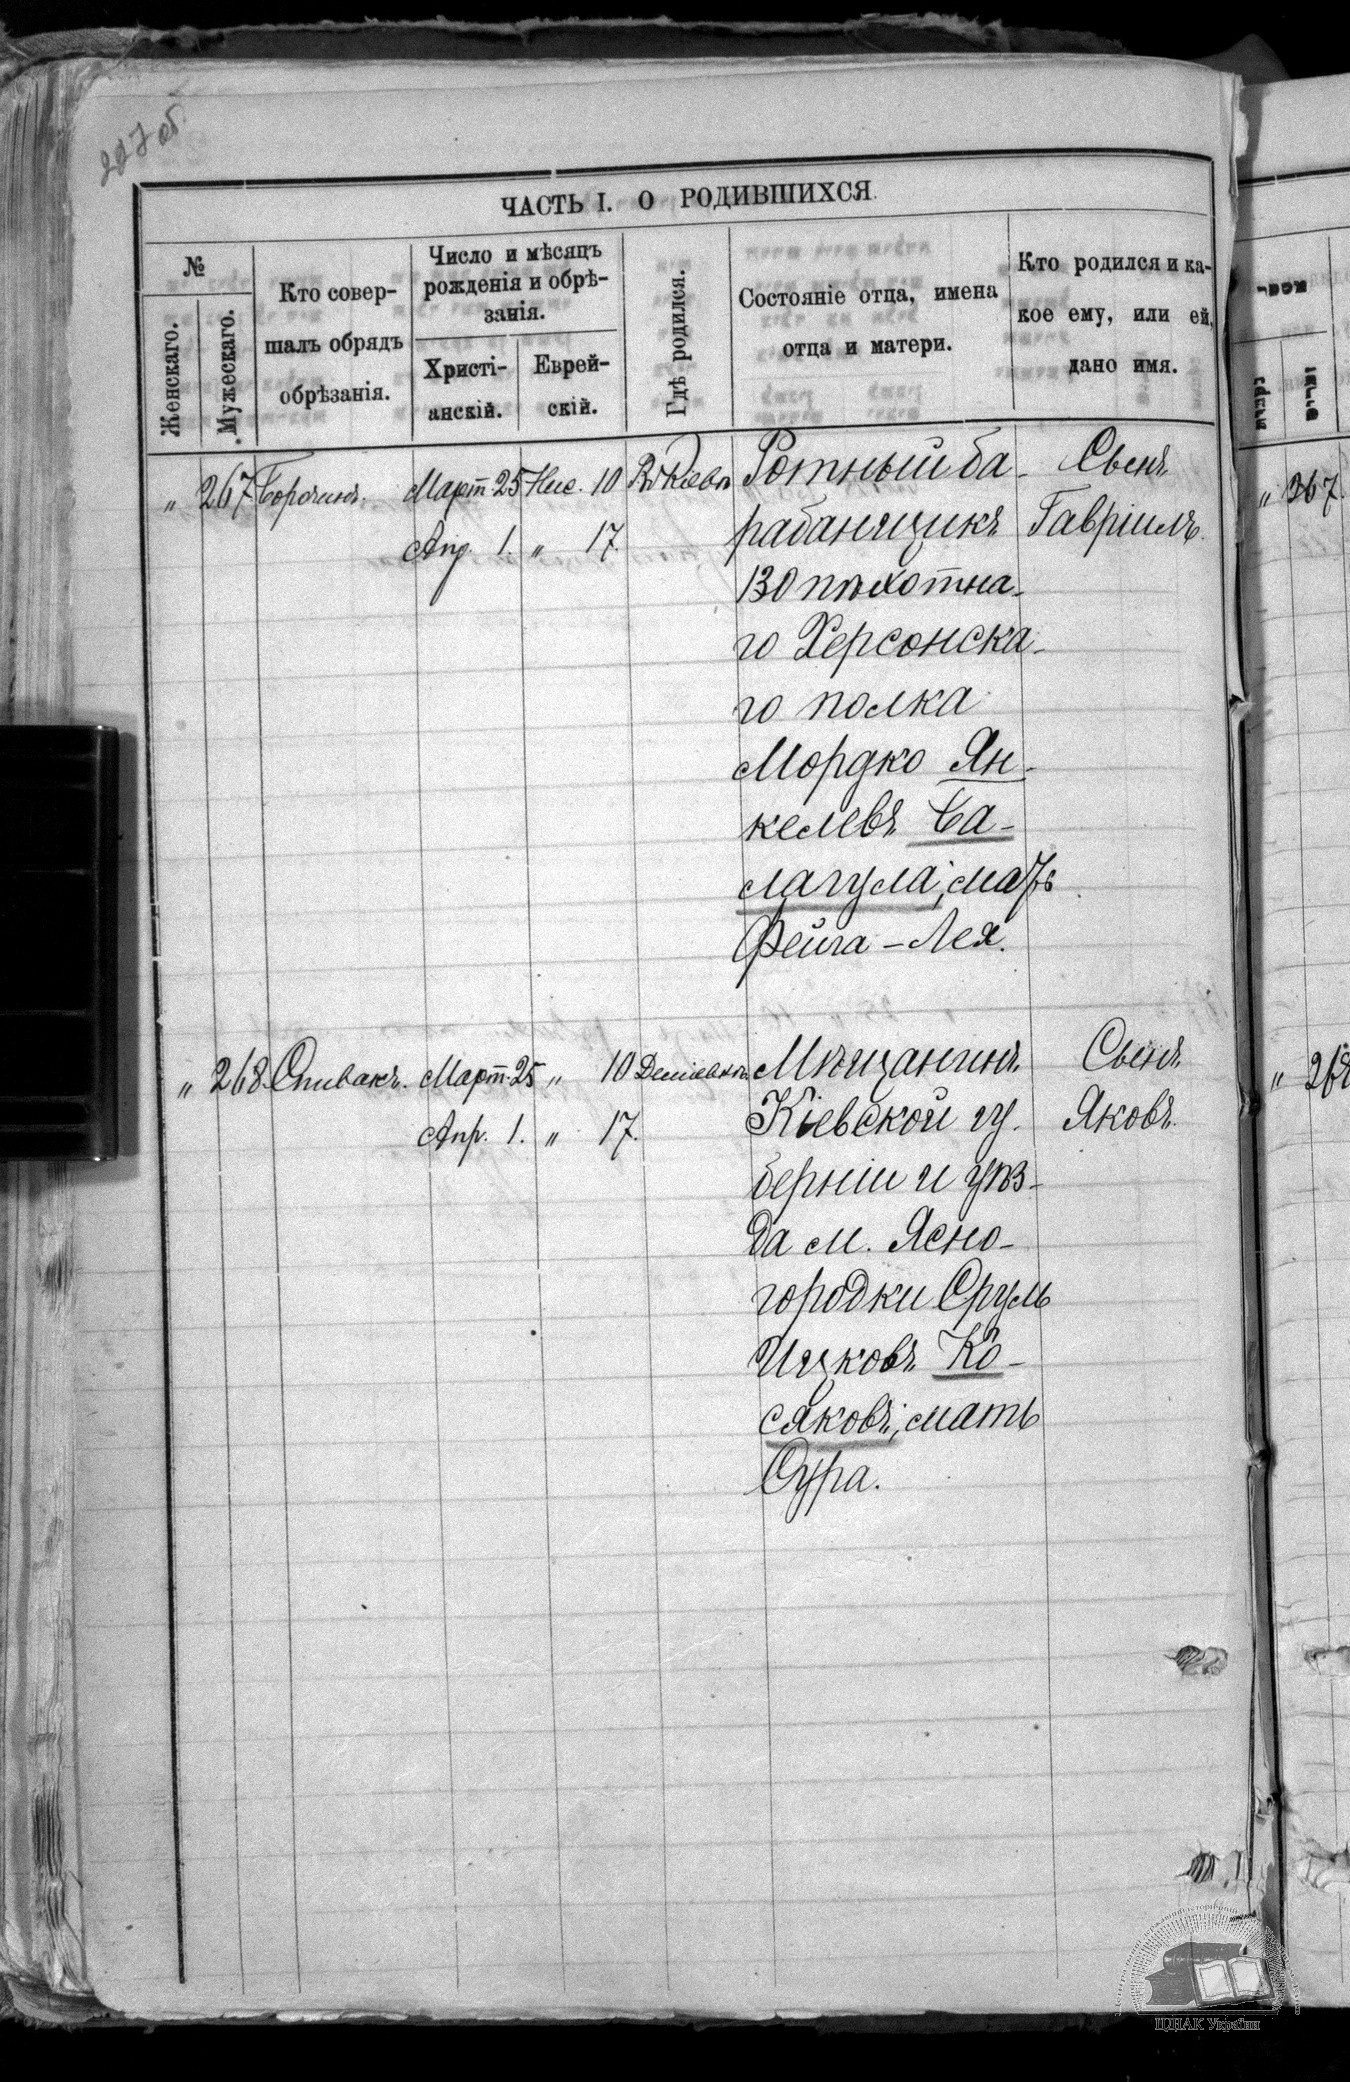 227 об.
ЧАСТЬ I. О РОДИВШИХСЯ.
№
Женскаго.
Мужескаго.
Кто совер-
шалъ обрядъ
обрѣзанія.
Число и мѣсяцъ
рожденія и обрѣ-
занія.
Христі-
анскій.
Еврей-
скій.
Гдѣ родился.
Состояніе отца, имена
отца и матери.
Кто родился и ка-
кое ему, или ей,
дано имя.
„ 267 Март. 25 Нис. 10 Въ Кіевѣ
Апр. 1. „ 17.
Ротный ба-
рабанщикъ
130 пѣхотна-
го Херсонска-
го полка
Мордко Ян-
келевъ Ба-
лагула, мать
Фейга-Лея.
Сынъ
Гавріилъ.
„ 268. Спивакъ. Март. 25 „ 10 Деміевкѣ
Апр. 1. „ 17.
Мѣщанинъ
Кіевской гу-
берніи и уѣз-
да м. Ясно-
городки Сруль
Ицковъ Ко-
сяковъ, мать
Сура.
Сынъ
Яковъ.
„ 267.
„ 268
ЦДІАК України